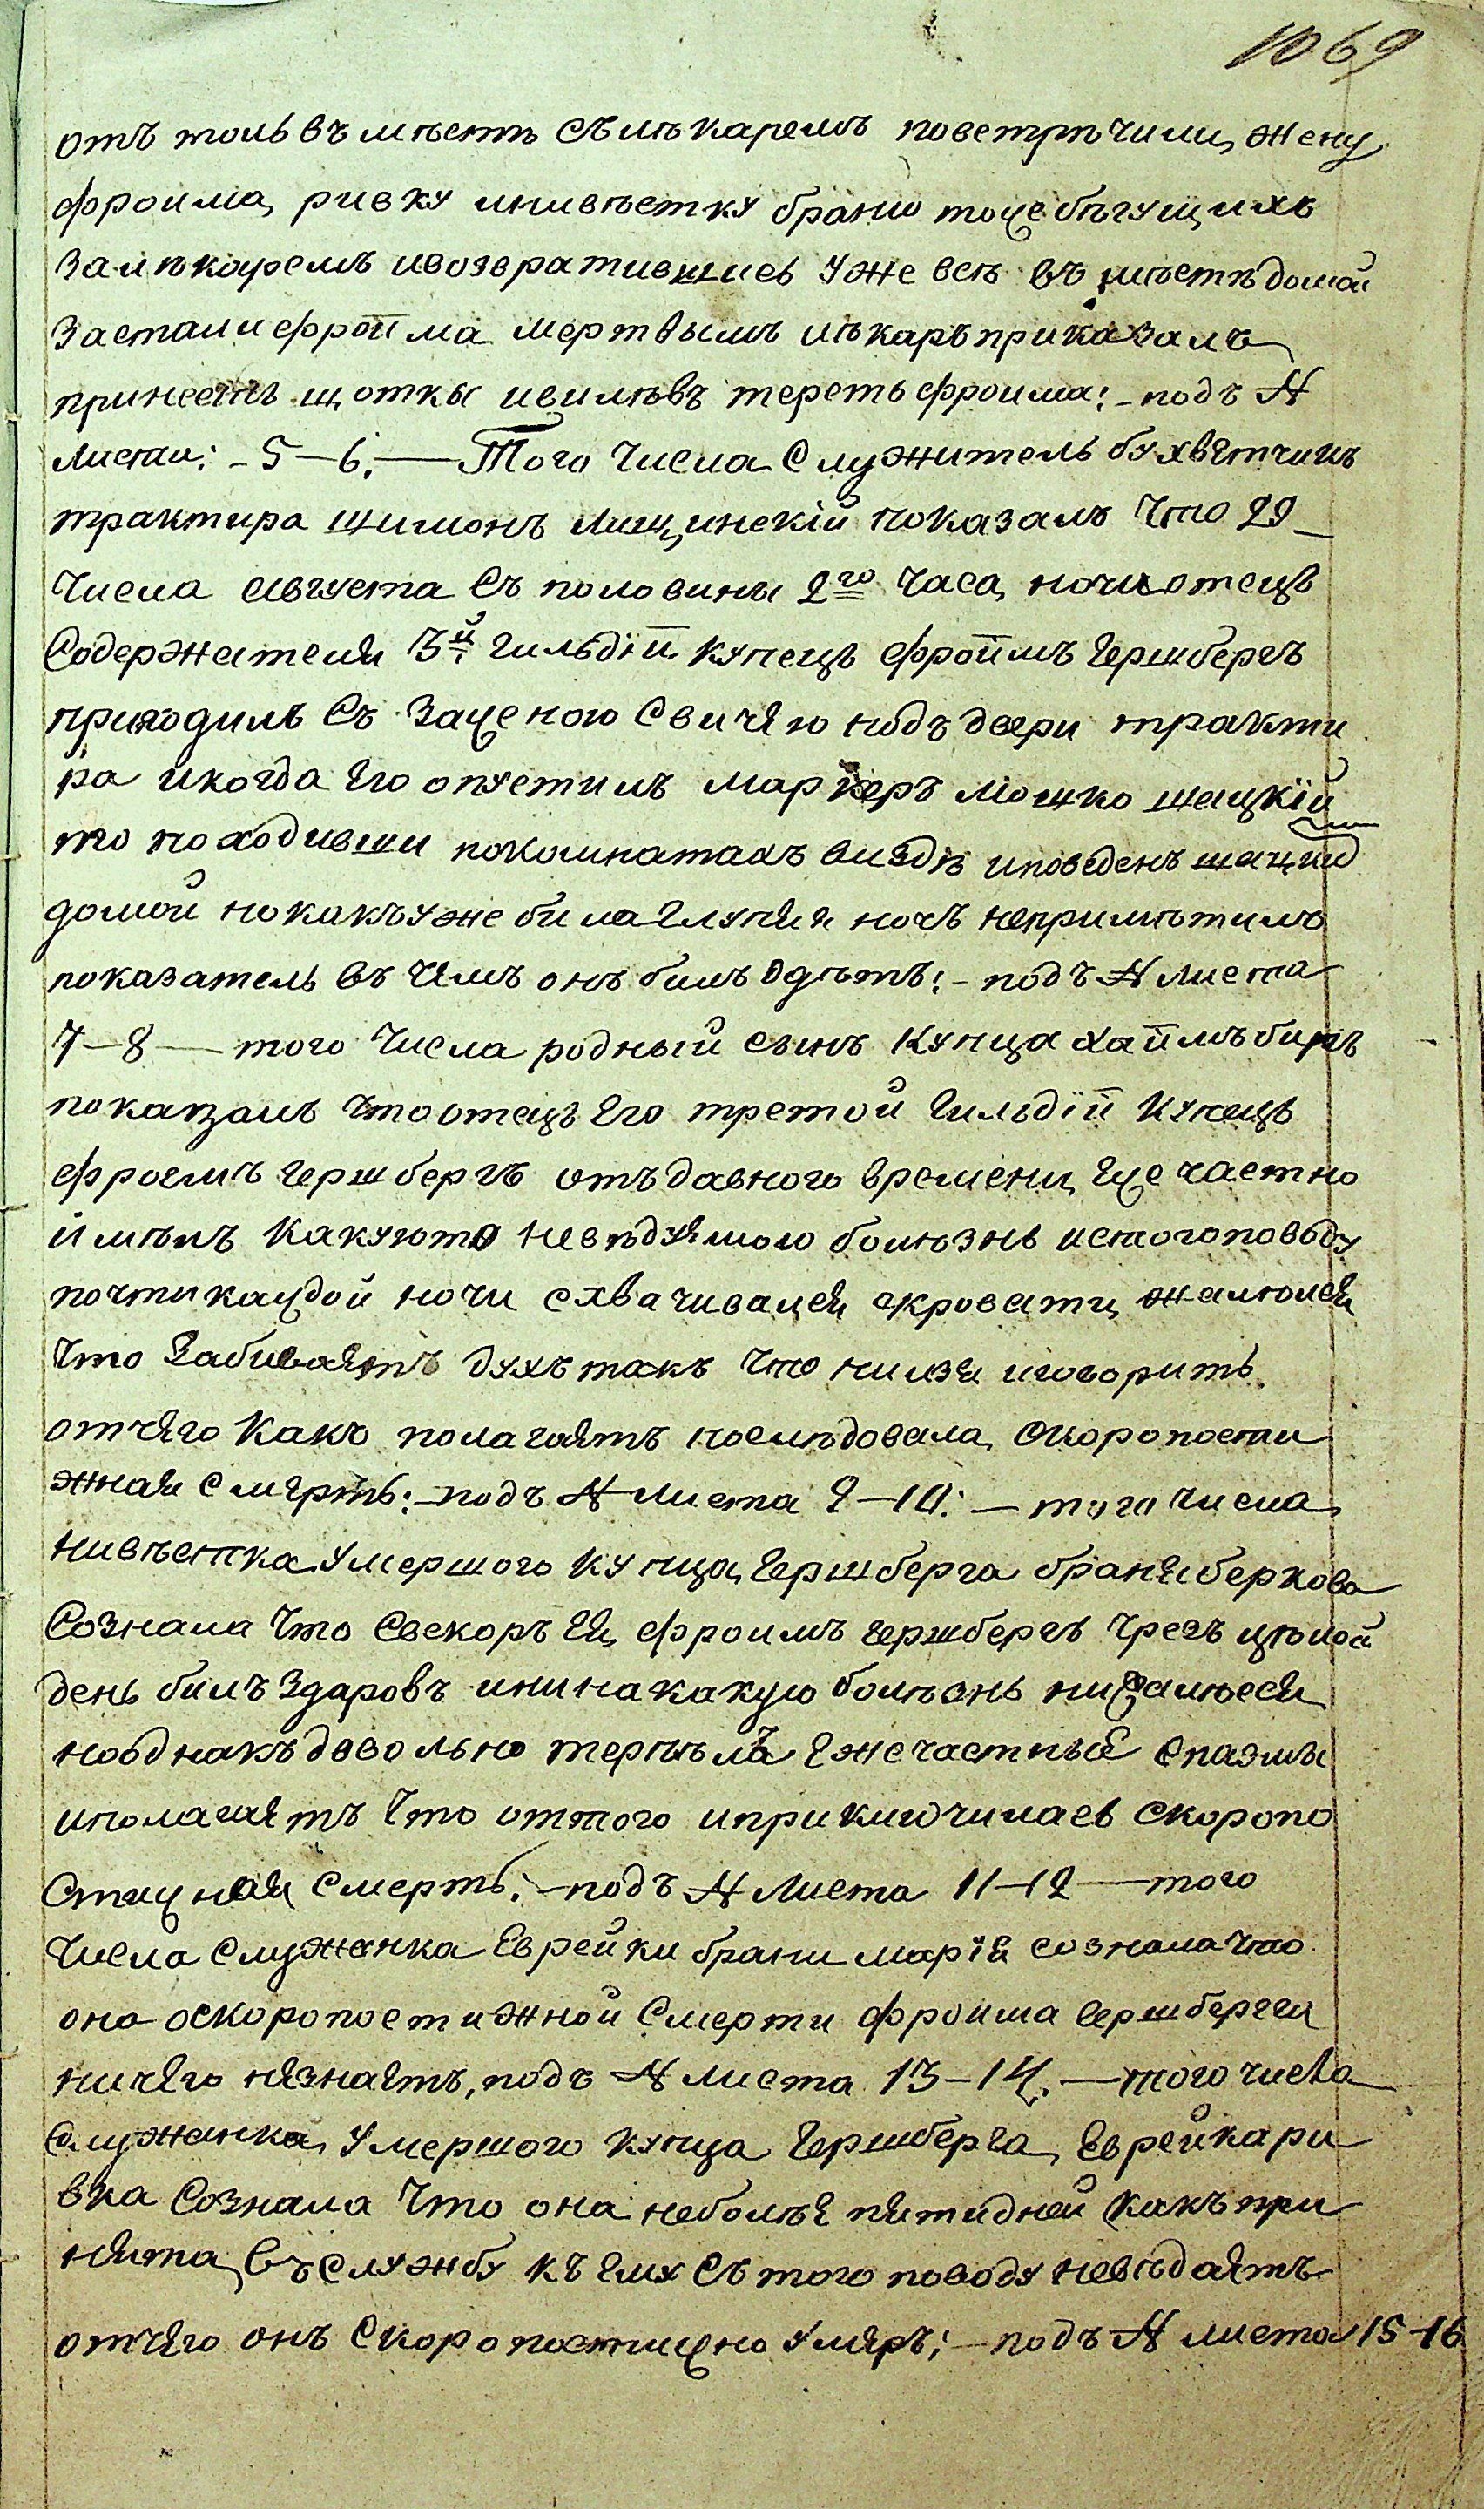 1069
отъ толь въ мѣстѣ съ лѣкаремъ повстрѣчили жену
фроима ривку инивѣстку браню тоже бѣгущихъ
за лѣкаремъ ивозвратившись уже всѣ въ мѣстѣ домой
застали фройма мертвымъ лѣкаръ приказалъ
принесть щотки ивилѣвъ тереть фроима: - под ъ №
листы: - 5 – 6. — Того числа служитель бухвѣтчикъ
трактира шимонъ лищинскій показалъ что 29
числа августа съ половины 2го часа ночи отецъ
содержателя 3й гильдіи купецъ фроимъ гершбергъ
приходилъ съ зажженою свичею подъ двери тракти
ра икогда его опустилъ маркеръ мошко шацкій
то походивши покомнатахъ виздѣ иповеденъ шацким
домой но какъ уже била глупая ночь непримѣтилъ
показатель въ чемъ онъ билъ одѣтъ: - подъ № листа
7 – 8 — того числа родный синъ купца хаймъ биръ
показалъ что отецъ его третой гильдіи купецъ
фроемъ гершбергъ отъ давного времени еще частно
имѣлъ какуюто невѣдуемою болѣзнь истого поводу
почти каждой ночи схвачивался скровати жалюлся
что забиваетъ духъ такъ что нилзя иговорить
отчего какъ полагаетъ послѣдовала скоропости
жная смерть: - подъ № листа 9 – 10: — того числа
нивѣстка умершого купца гершберга браня беркова
сознала что свекоръ ея фроимъ гершбергъ чрезъ цѣлой
день билъ здаровъ инина какую болѣзнь нижалюеся
нооднакъ довольно терпѣлъ ежечастныя спазмы
иполагаетъ что оттого иприключилась скоропо
стижная смерть: - подъ № листа 11 – 12 — того
числа служанка еврейки брани марія сознала что
она оскоропостижной смерти фроима гершберга
ничего незнаетъ, подъ № листа 13 – 14. — того числа
служанка умершого купца гершберга еврейка ри
вка сознала что она неболѣе пятидней какъ при
нята въ службу къ ему съ того поводу невѣдаетъ
отчего онъ скоропостижно умеръ; - подъ № листа 15 – 16